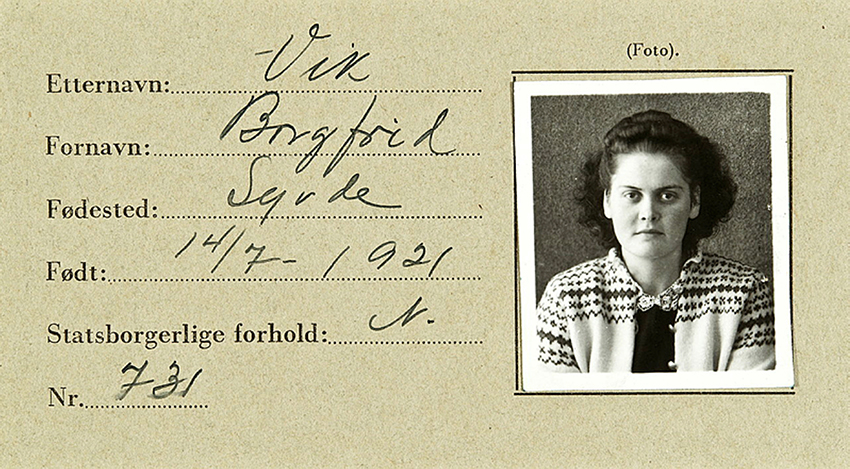 (Foto).
Etternavn: Vik
Fornavn: Borgfrid
Fødested: Syvde
Født: 14/7 - 1921
Statsborgerlige forhold: N.
Nr. 731